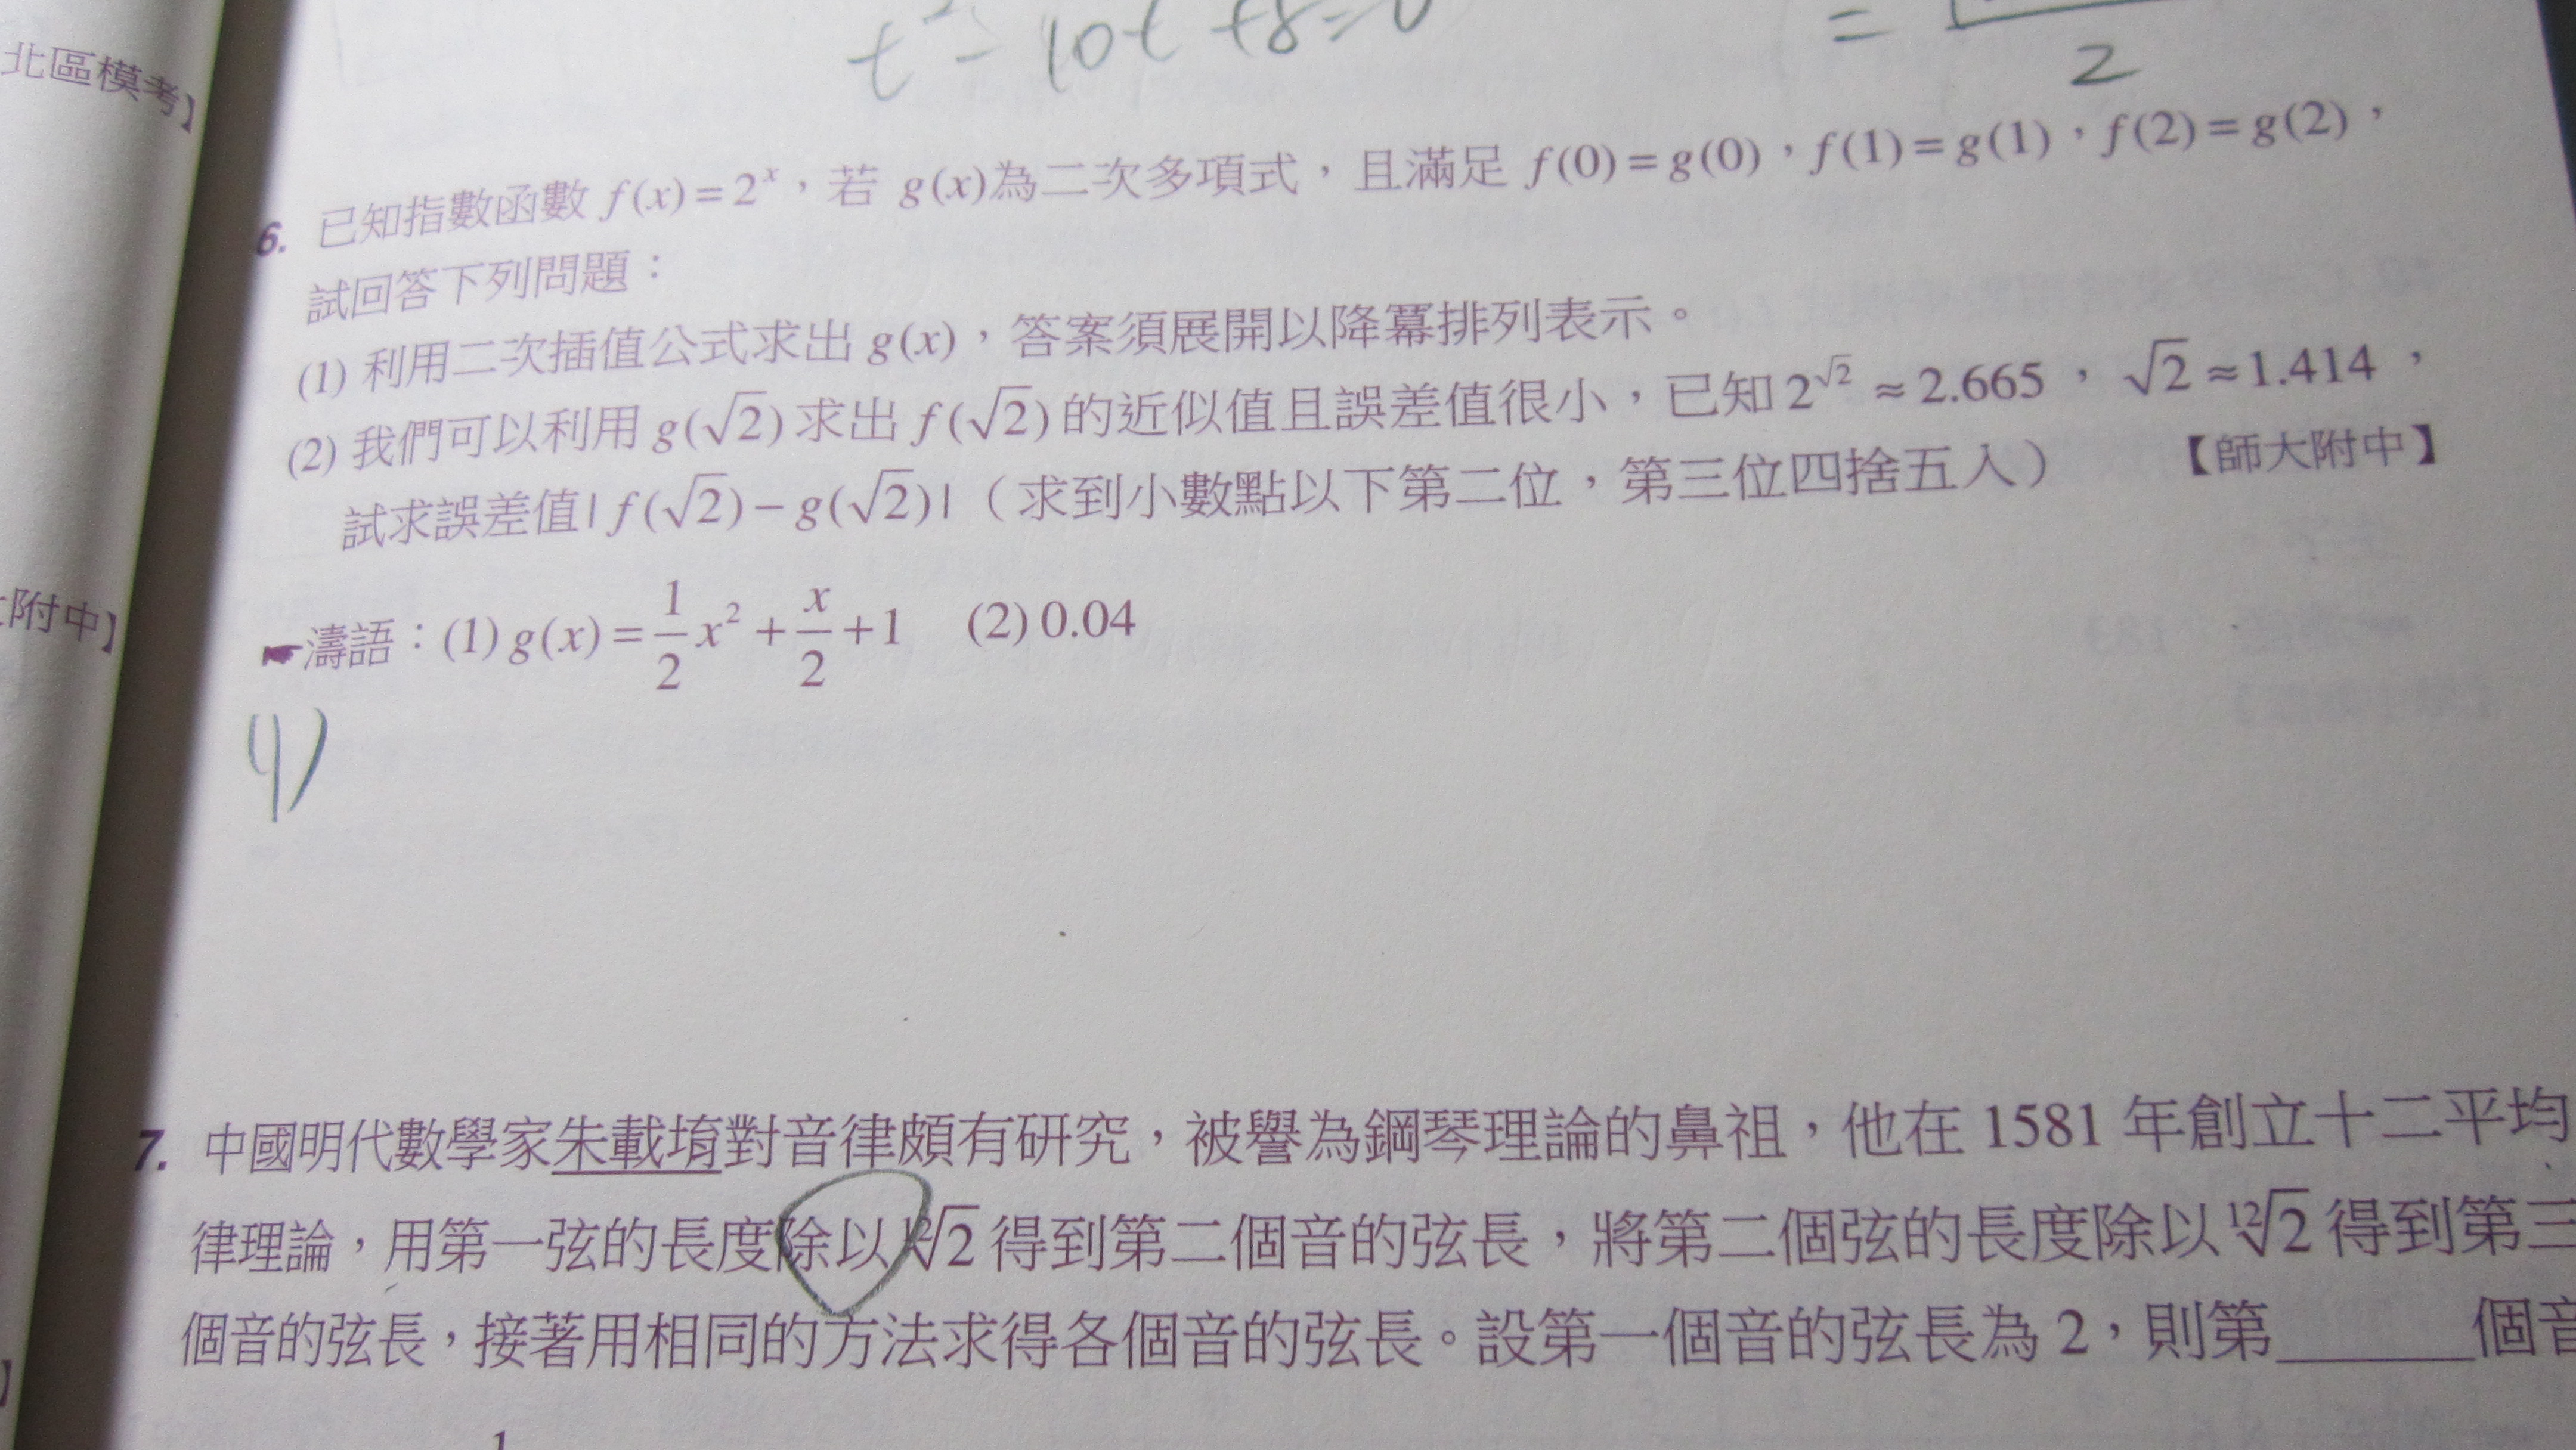 t² - 10t + 8 = 0
= 2
北區模考】
6. 已知指數函數 f(x) = 2ˣ，若 g(x)為二次多項式，且滿足 f(0) = g(0)，f(1) = g(1)，f(2) = g(2)，
試回答下列問題：
(1) 利用二次插值公式求出 g(x)，答案須展開以降冪排列表示。
(2) 我們可以利用 g(√2) 求出 f(√2) 的近似值且誤差值很小，已知 2^√2 ≈ 2.665，√2 ≈ 1.414，
試求誤差值 | f(√2) − g(√2) |（求到小數點以下第二位，第三位四捨五入） 【師大附中】
附中】
☛濤語：(1) g(x) = 1/2 x² + x/2 + 1 (2) 0.04
(1)
7. 中國明代數學家朱載堉對音律頗有研究，被譽為鋼琴理論的鼻祖，他在 1581 年創立十二平均
律理論，用第一弦的長度除以 ¹²√2 得到第二個音的弦長，將第二個弦的長度除以 ¹²√2 得到第三
個音的弦長，接著用相同的方法求得各個音的弦長。設第一個音的弦長為 2，則第______個音
】
1